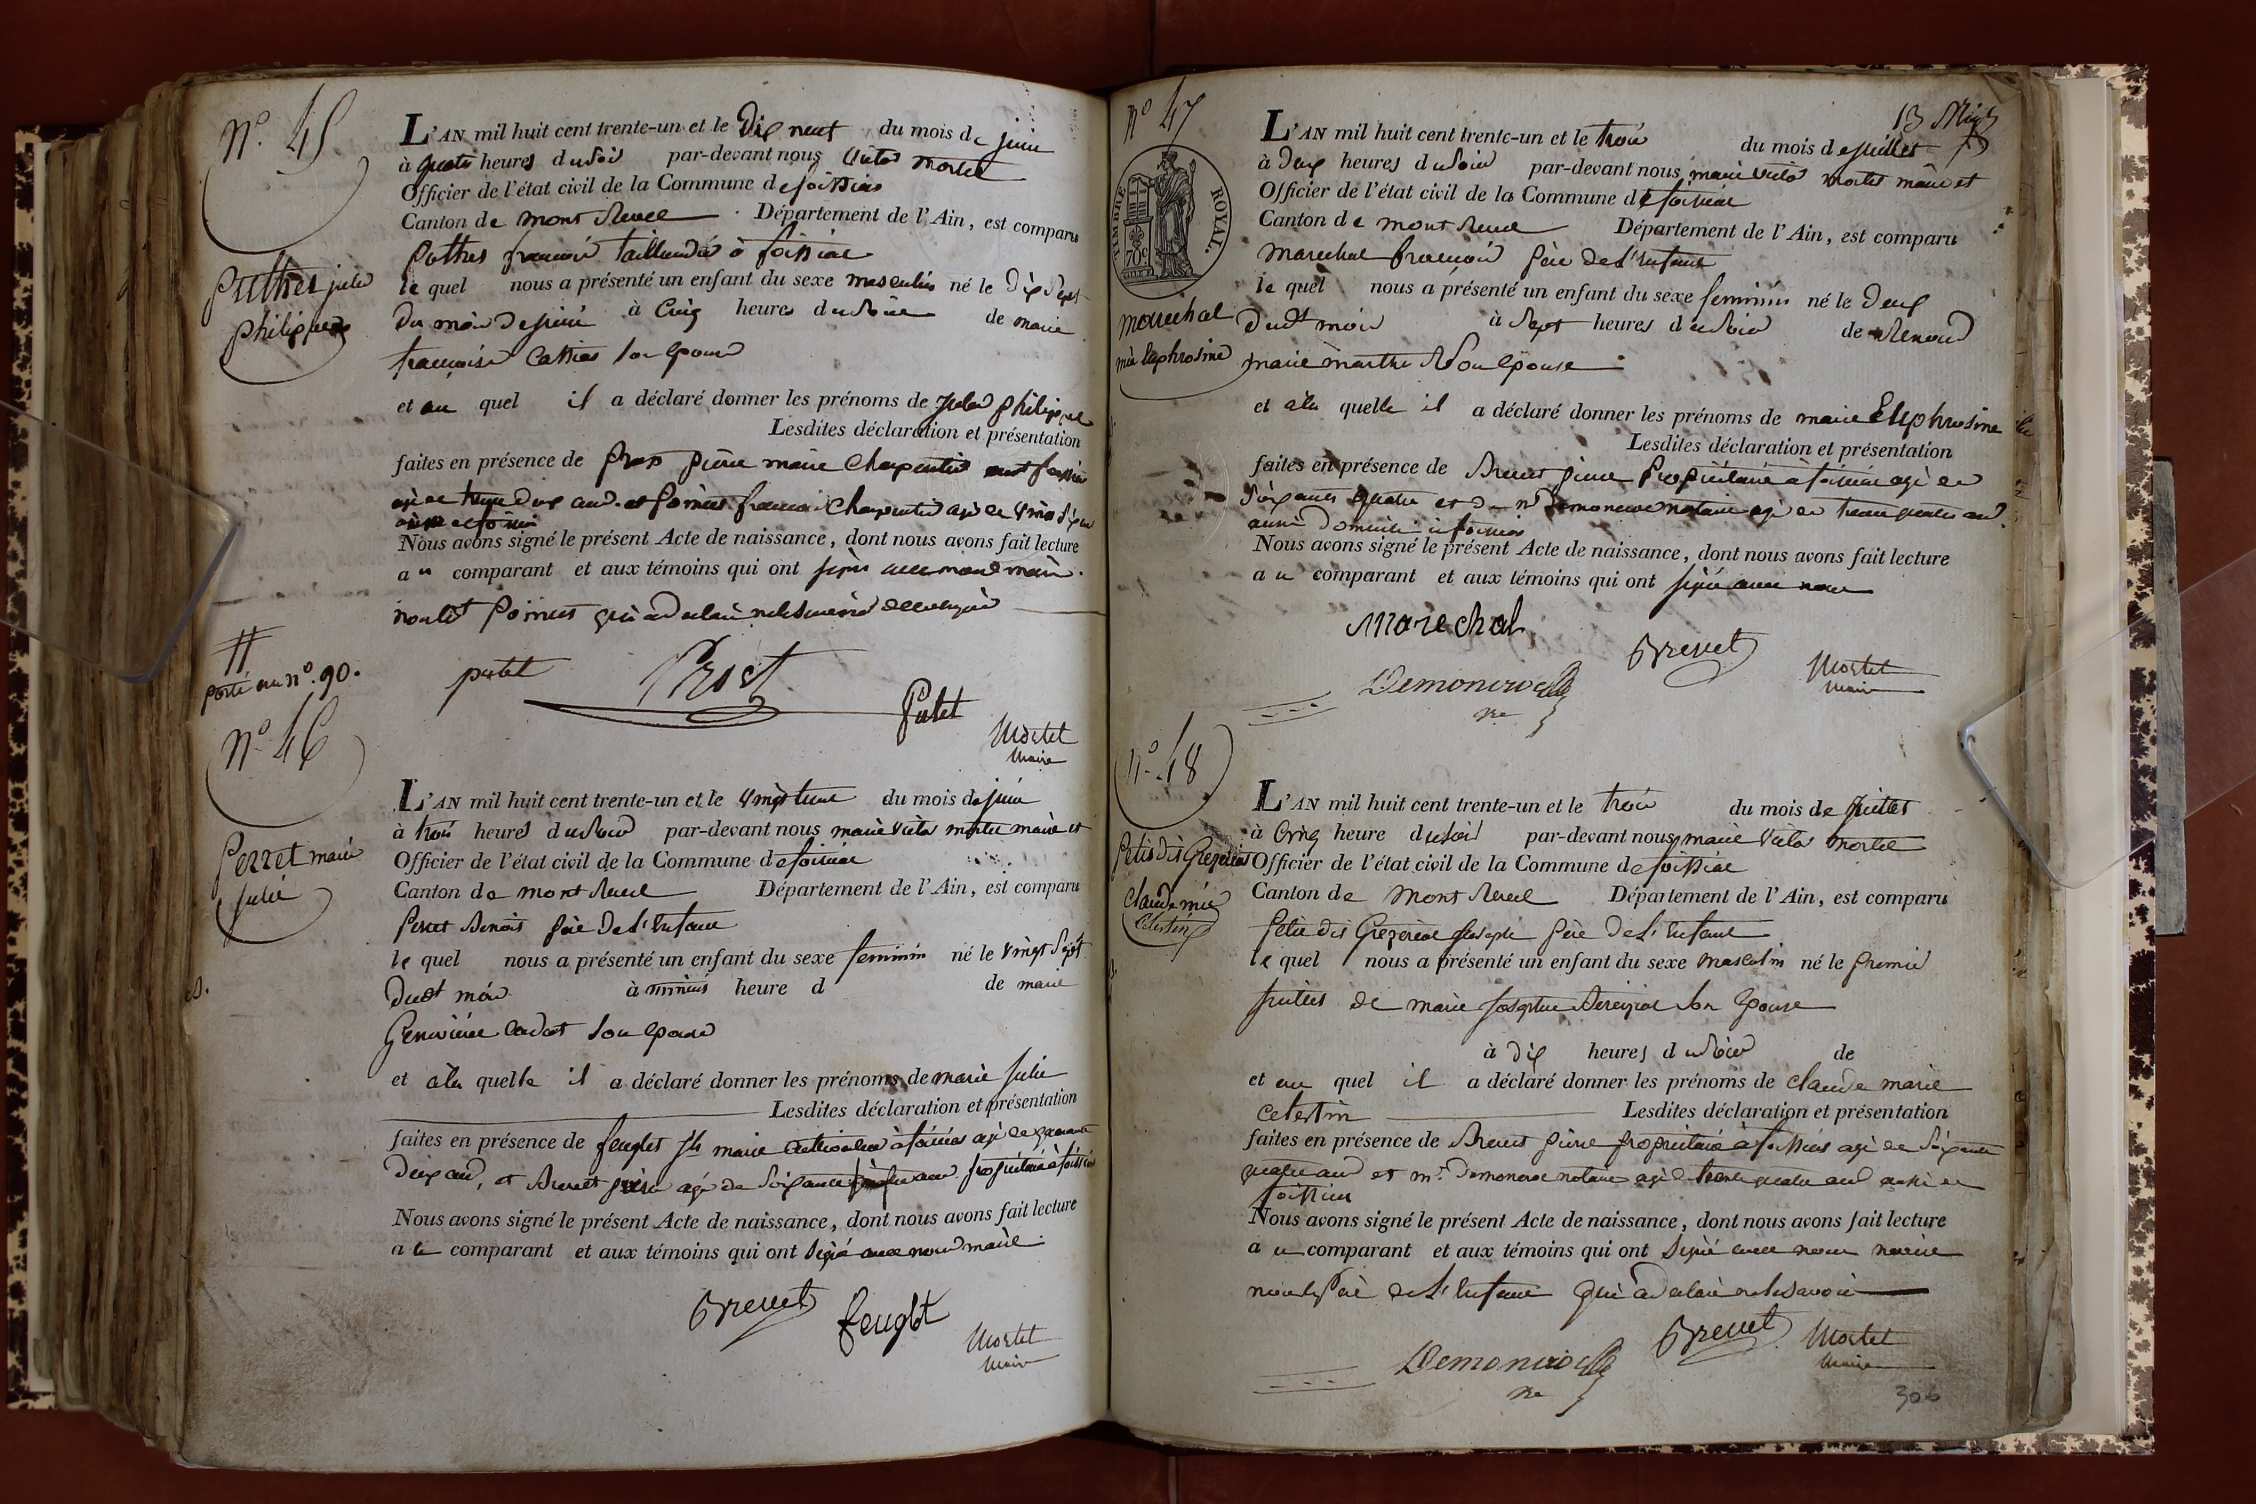 N.° 45
Puthet jules
philippe
L'AN mil huit cent trente-un et le Dix neuf du mois de juin
à quatre heures du soir par-devant nous victor mortel
Officier de l'état civil de la Commune de foissiat
Canton de mont Revel Département de l'Ain, est comparu
françois taillandier à foissiat
le quel nous a présenté un enfant du sexe masculin né le Dix sept
Du mois de juin à Cinq heures du soir de marie
françoise son épouse
et au quel il a déclaré donner les prénoms de jules philippe
Lesdites déclaration et présentation
faites en présence de Prost pierre marie charpentier
françois charpentier agé de
Nous avons signé le présent Acte de naissance, dont nous avons fait lecture
au comparant et aux témoins qui ont signé avec nous maire
non led. qui a déclaré ne le savoir de ce enquis
putet
Prost
Putet
Mortel
Maire
porté au n°. 90.
N.° 46
Perret marie
julie
L'AN mil huit cent trente-un et le vingt huit du mois de juin
à trois heures du soir par-devant nous marie victor mortel maire et
Officier de l'état civil de la Commune de foissiat
Canton de mont Revel Département de l'Ain, est comparu
Perret Benoit père de l'enfant
le quel nous a présenté un enfant du sexe feminin né le vingt sept
dudt mois à minuit heure d de marie
Genevieve cadot son épouse
et à la quelle il a déclaré donner les prénoms de marie julie
Lesdites déclaration et présentation
faites en présence de feuglet marie à foissiat agé de quarante
Deux ans, et Brevet pierre agé de soixante ans propriétaire à foissiat
Nous avons signé le présent Acte de naissance, dont nous avons fait lecture
au comparant et aux témoins qui ont signé avec nous maire
Brevet
feuglet
Mortel
Maire
13 Mig
N° 47
TIMBRE ROYAL.
70c
marechal
mie Euphrosine
L'AN mil huit cent trente-un et le trois du mois de juillet
à Deux heures du soir par-devant nous marie victor mortel maire et
Officier de l'état civil de la Commune de foissiat
Canton de mont Revel Département de l'Ain, est comparu
marechal françois père de l'enfant
le quel nous a présenté un enfant du sexe feminin né le Deux
dudt mois à sept heures du soir de Renoud
marie marthe son épouse
et à la quelle il a déclaré donner les prénoms de marie Euphrosine
Lesdites déclaration et présentation
faites en présence de Brevet pierre propriétaire à foissiat agé de
soixante quatre et de mr Demoncroc notaire agé de trente quatre ans
aussi domicilié à foissiat
Nous avons signé le présent Acte de naissance, dont nous avons fait lecture
au comparant et aux témoins qui ont signé avec nous
Marechal
Brevet
Demoncroc
nre
Mortel
Maire
N.° 48
claude mie
Celestin
L'AN mil huit cent trente-un et le trois du mois de juillet
à Cinq heure du soir par-devant nous marie victor mortel
Officier de l'état civil de la Commune de foissiat
Canton de Mont Revel Département de l'Ain, est comparu
joseph père de l'enfant
le quel nous a présenté un enfant du sexe masculin né le premier
juillet de marie josephte son épouse
à dix heures du soir de
et au quel il a déclaré donner les prénoms de claude marie
Celestin Lesdites déclaration et présentation
faites en présence de Brevet pierre propriétaire à foissiat agé de soixante
quatre ans et mr. Demoncroc notaire agé de trente quatre ans aussi de
foissiat
Nous avons signé le présent Acte de naissance, dont nous avons fait lecture
au comparant et aux témoins qui ont signé avec nous maire
non le père de l'enfant qui a déclaré ne le savoir
Demoncroc
nre
Brevet
Mortel
Maire
306